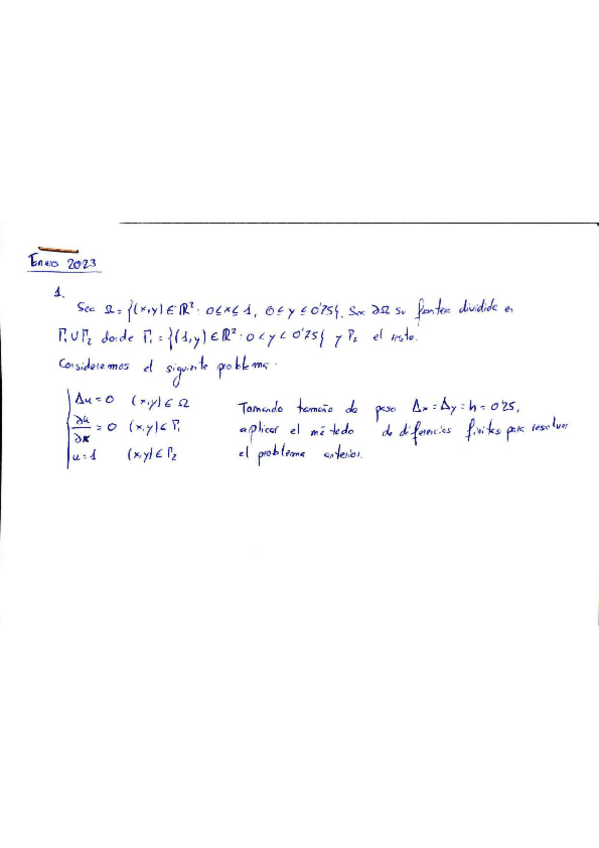 Enero 2023
1.
Sea Ω = {(x,y) ∈ ℝ² : 0 ≤ x ≤ 1, 0 ≤ y ≤ 0'75}. Sea ∂Ω su frontera dividida en
Γ₁ ∪ Γ₂ donde Γ₁ = {(1,y) ∈ ℝ² : 0 < y < 0'75} y Γ₂ el resto.
Consideremos el siguiente problema:
Δu = 0 (x,y) ∈ Ω Tomando tamaño de paso Δx = Δy = h = 0'25,
∂u/∂x = 0 (x,y) ∈ Γ₁ aplicar el método de diferencias finitas para resolver
u = 1 (x,y) ∈ Γ₂ el problema anterior.